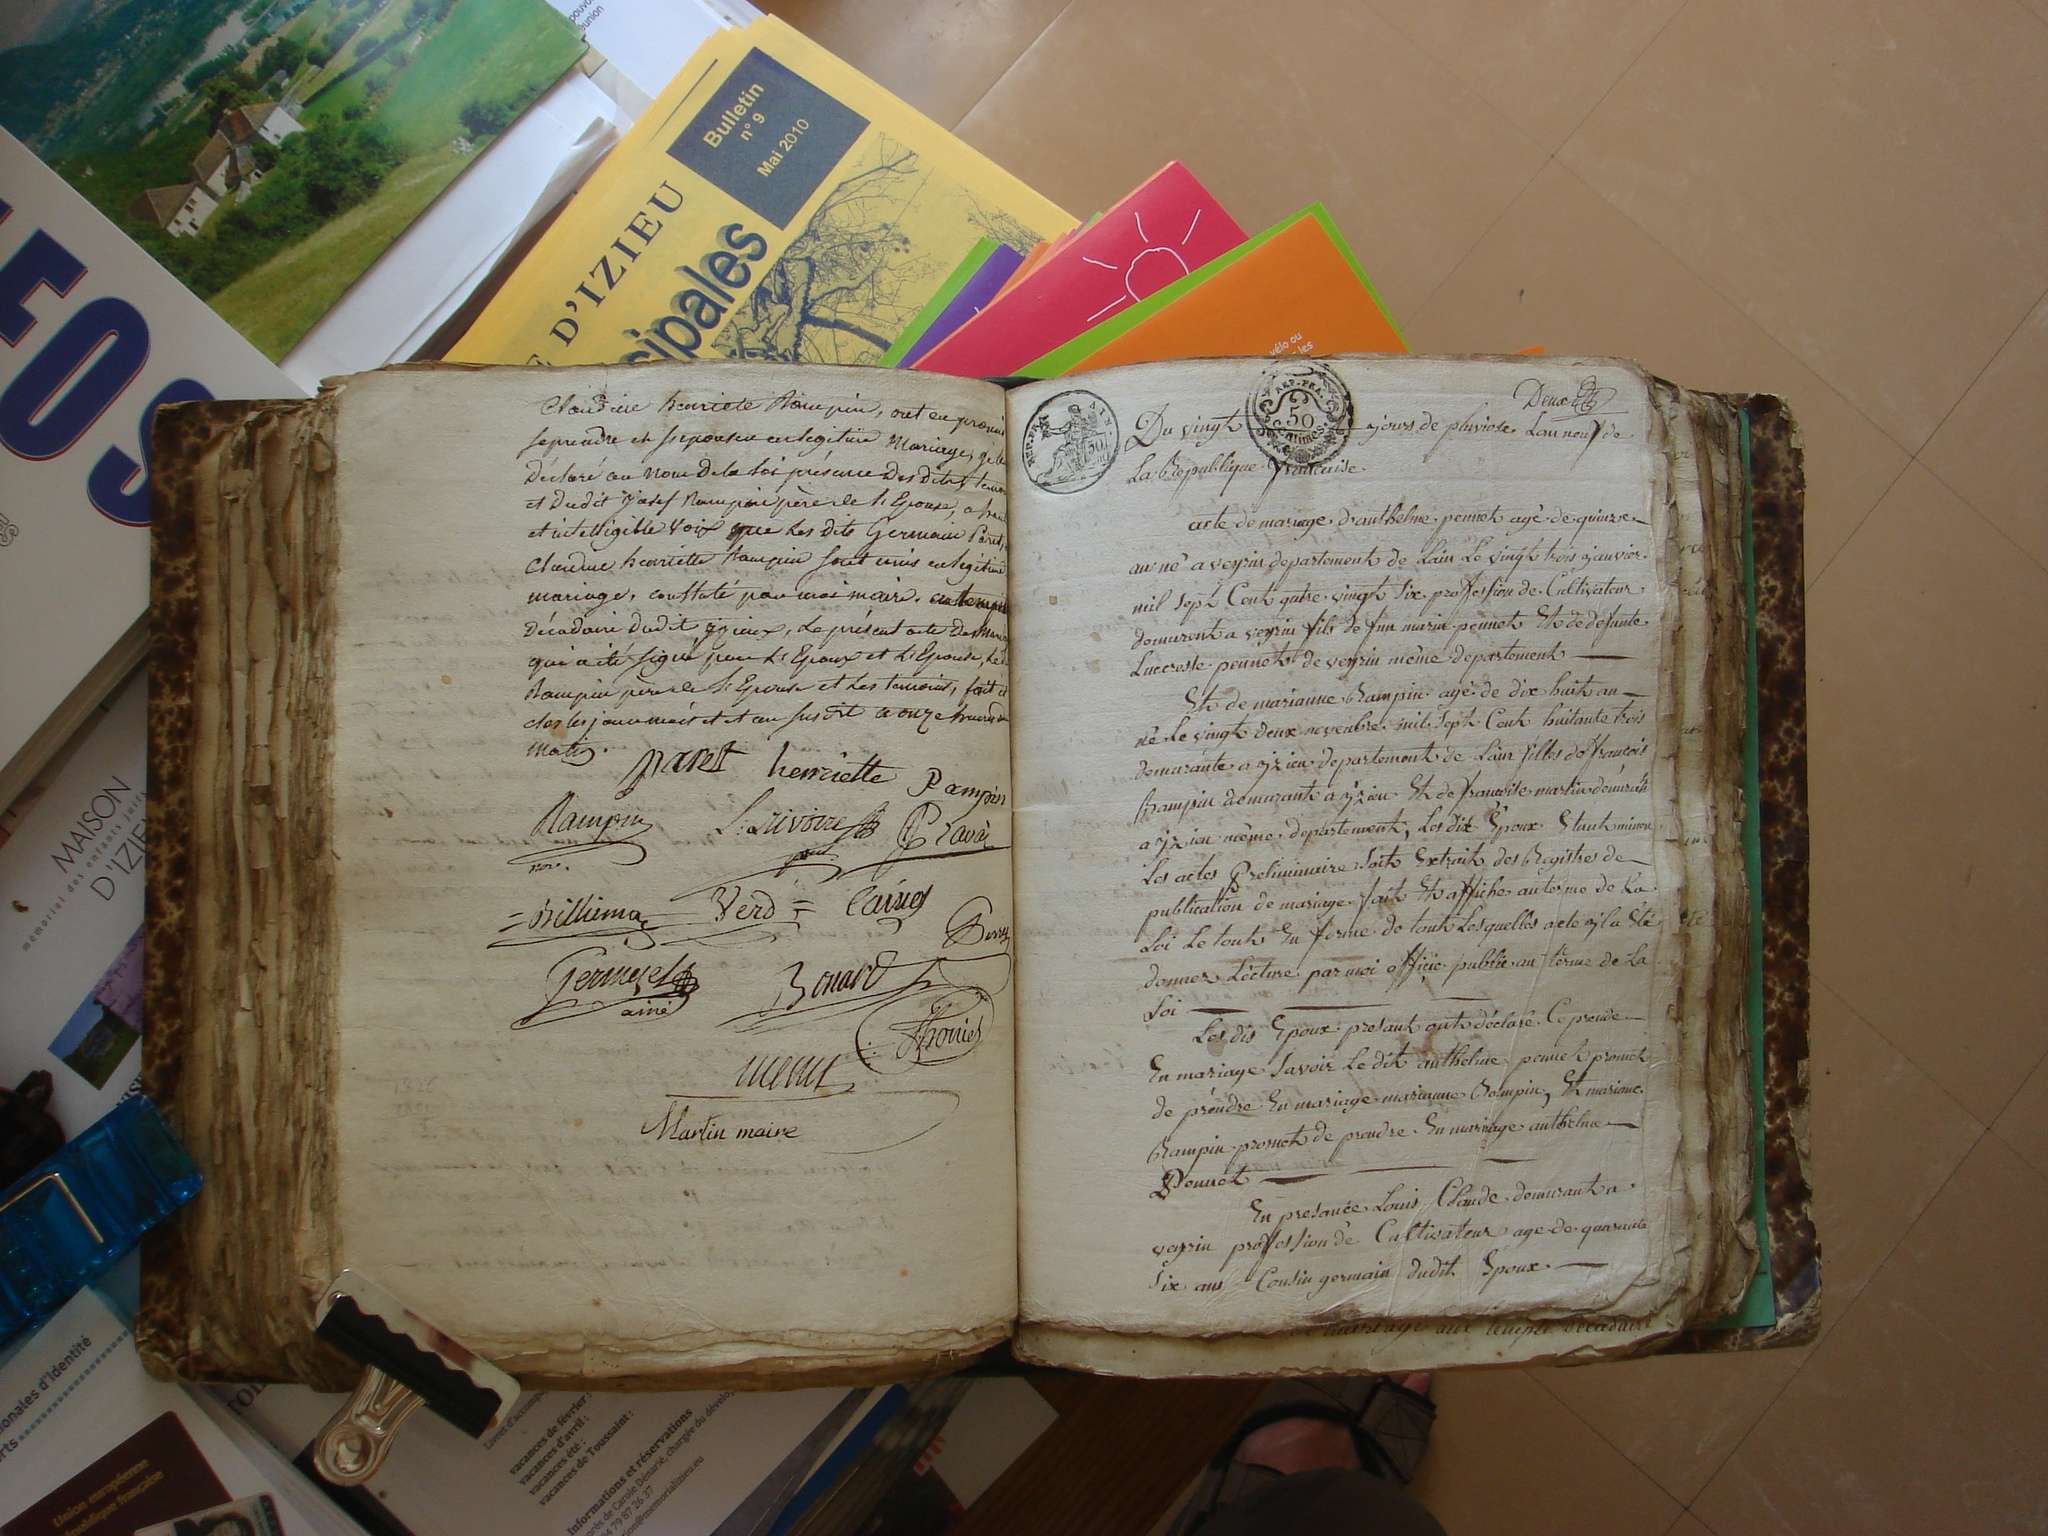 pouvoi
réunion
Bulletin
n° 9
Mai 2010
E D'IZIEU
cipales
FOS
vélo ou
les
MAISON
D'IZIEU
mémorial des enfants juifs
Claudine henriete Rampin, ont en promis
se prendre et s'epouser en legitime Mariage, je le
Déclaré au Nom de la loi présence des dits temo
et dudit Josef Rampin père de l'Epouse, a haute
et intelligible voix que les dits Germain Paret,
Claudine henriette Rampin sont unis en légitime
mariage, constaté par moi maire. au temple
Décadaire dudit yzieux, le présent acte de mari
qui a été signé par l'Epoux et l'Epouse, le d
Rampin père de l'Epouse et les temoins, fait et
clos les jour mois et an susdit a onze heures du
matin.
paret henriette Rampin
Rampin L. Rivoire Pravaz
père.
Billiema Verd Cairies
Germeret Bonard
ainé
Thorrier
Martin maire
REP. FRA. AIN. 50
REP. FRA. 50 Centimes.
Deux
Du vingt jours de pluviose Lan neuf de
La Republique francaise.
acte de mariage d'anthelme pennet agé de quinze
an né a veyrin departement de Lain Le vingt trois janvier
mil sept Cent quatre vingt six proffession de Cultivateur
demurant a veyrin fils de feu marin pennet Et de defunte
Lucresse pennet de veyrin même departement
Et de marianne Rampin agé de dix huit an
né Le vingt deux novenbre mil sept Cent huitante trois
demurante a yzieu departement de Lain filles de francois
Rampin demurant a yzieu Et de francoise martin demurat
a yzieu même departement, Les dit Epoux Etant mineur
Les actes Preliminaire soit Extrait des Registres de
publication de mariage fait Et affiche au terme de La
Loi Le tout En forme de tout Lesquelles acte yl a Eté
donner Lecture par moi officie public au terme de La
Loi
Les dis Epoux presant ont déclaré Ce prende
En mariage Savoir Le dit anthelme pennet promet
de prendre En mariage marianne Rampin, Et mariane
Rampin promet de prendre En mariage anthelme
Pennet
En presance Louis Claude demurant a
veyrin proffession de Cultivateur age de quarante
six ans Cousin germain dudit Epoux
mariage au temple décadaire
ionales d'Identité
Union européenne
République française
Livret d'accomp
vacances de février :
vacances d'avril :
vacances été :
vacances de Toussaint :
Informations et réservations
près de Carole Dénarié, chargée du dévelo
04 79 87 26 37
@memorializieu.eu